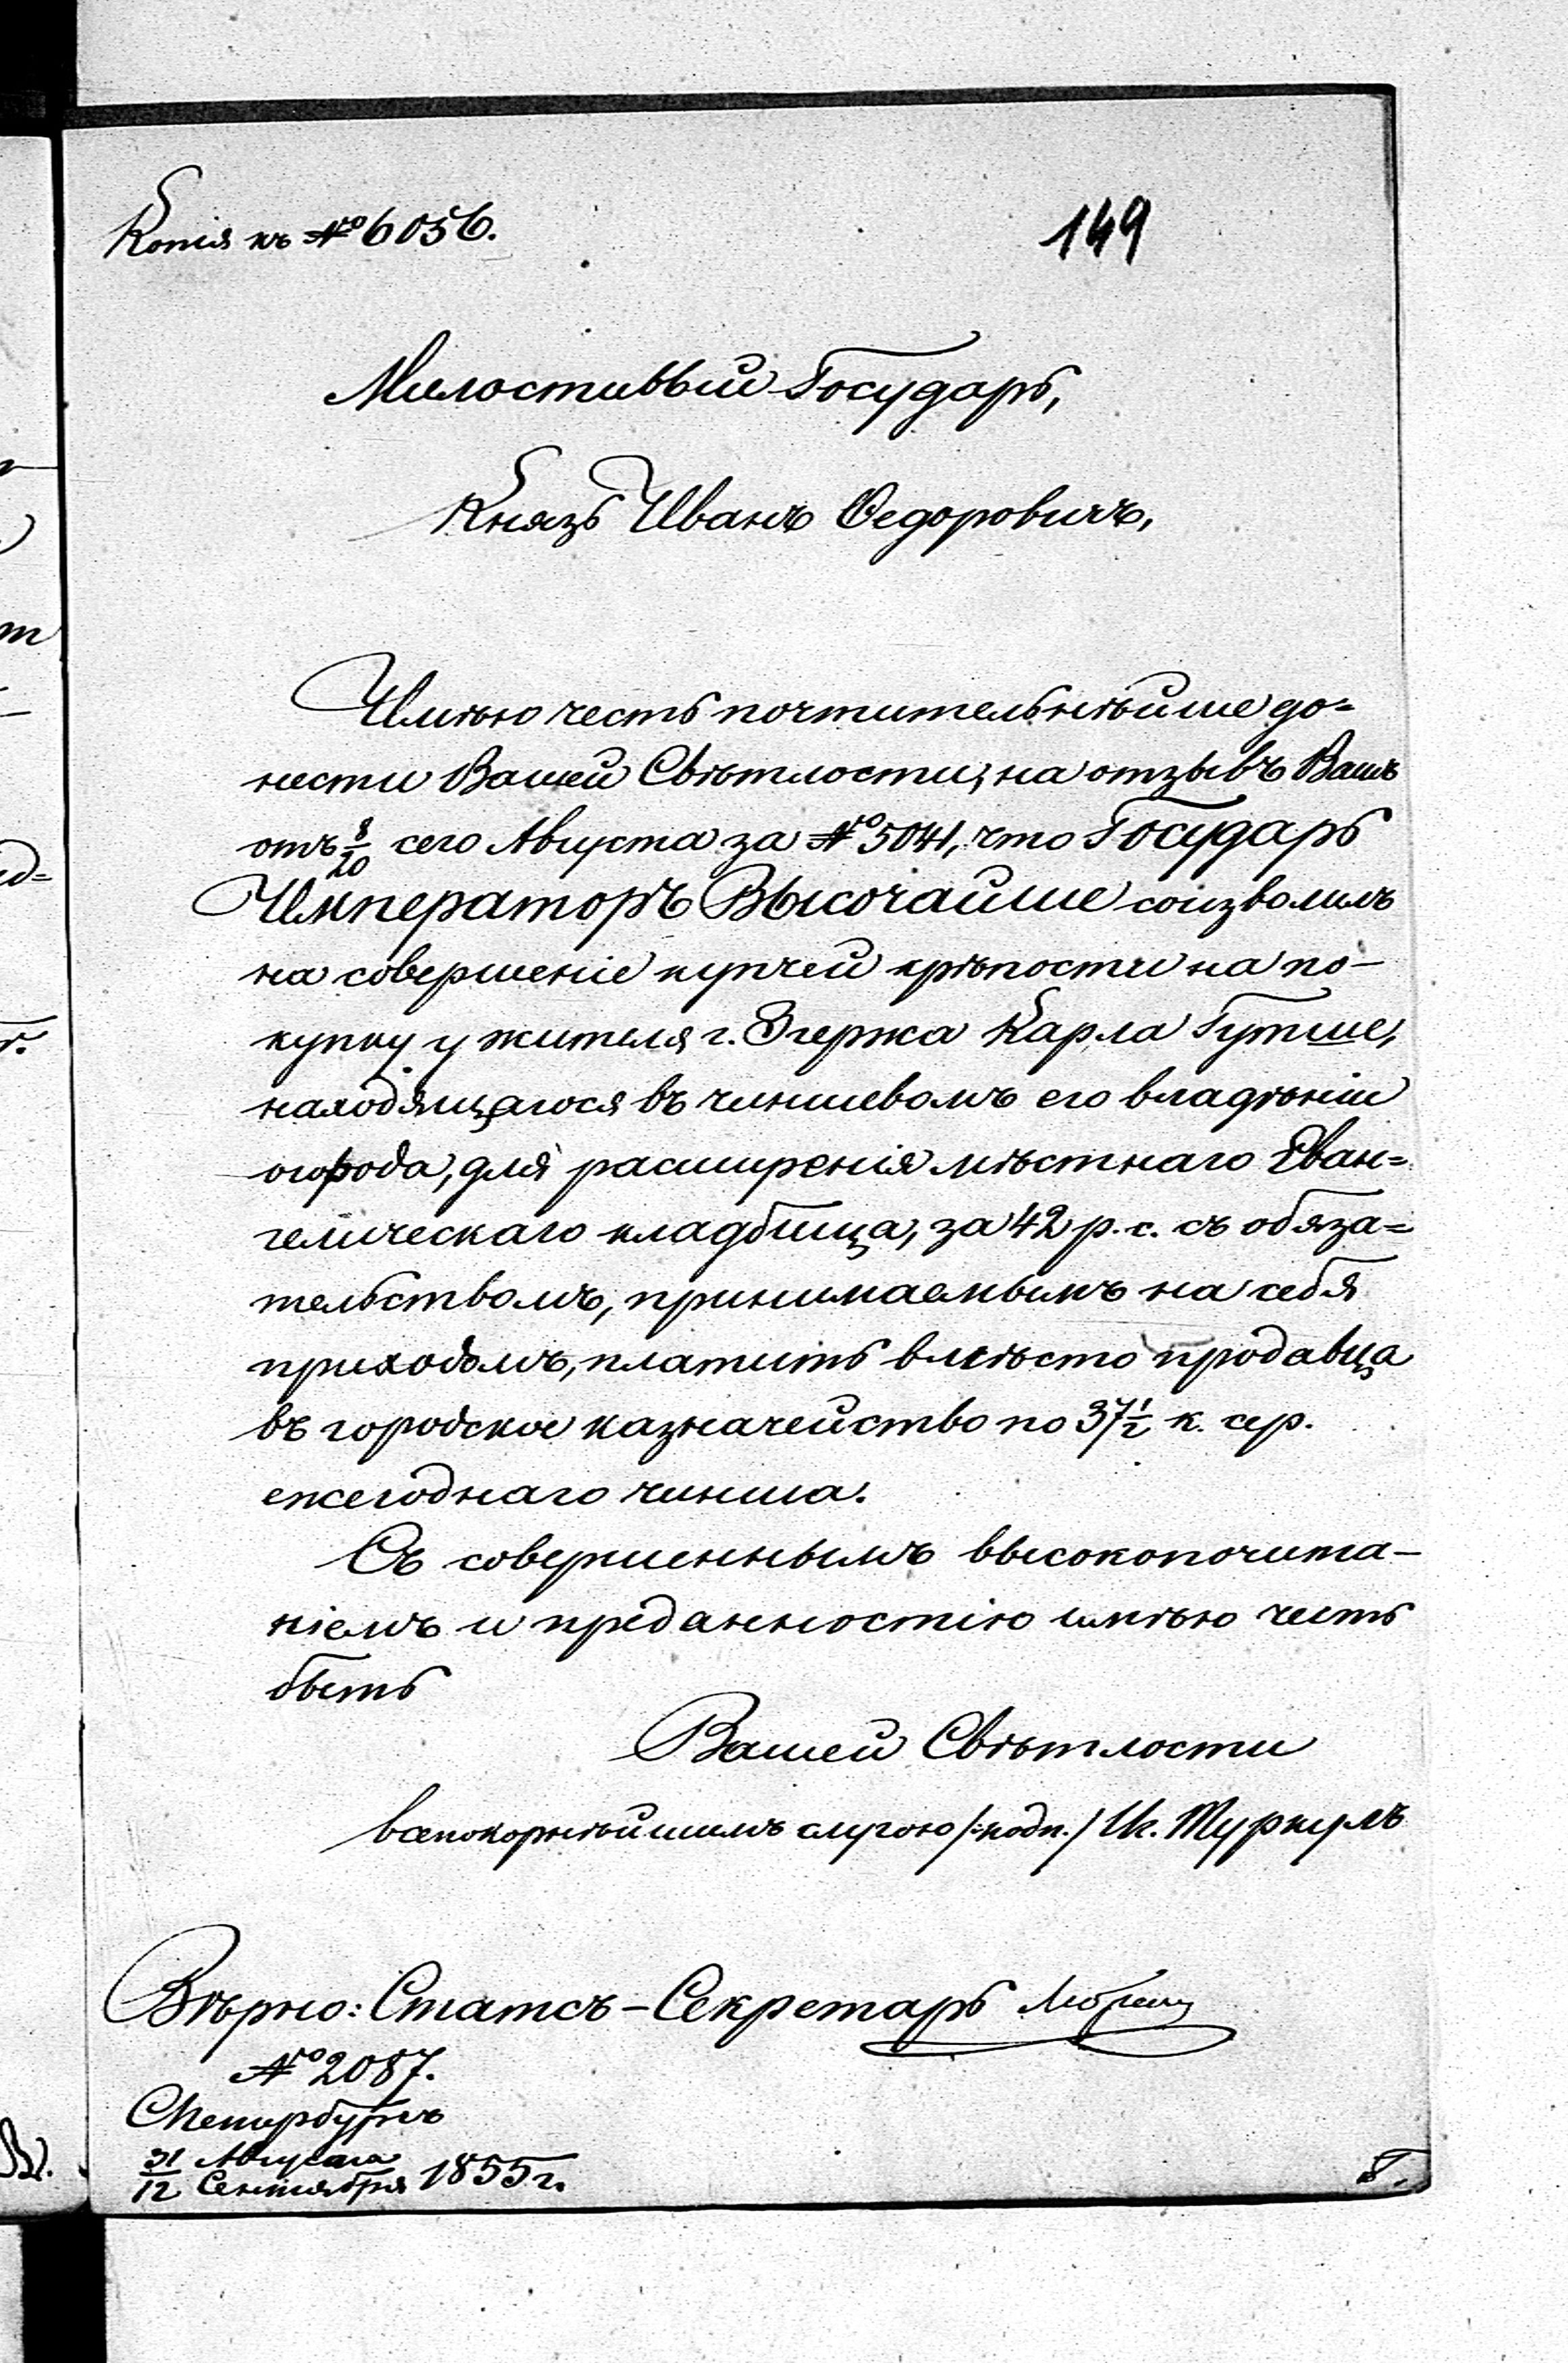 Копія къ № 6056.
149
Милостивый Государь,
Князь Иванъ Ѳедоровичъ,
Имѣю честь почтительнѣйше до=
нести Вашей Свѣтлости, на отзывъ Вашъ
отъ 8/20 сего Августа за № 5041, что Государь
Императоръ Высочайше соизволилъ
на совершеніе купчей крѣпости на по-
купку у жителя г. Згержа Карла Гутше,
находящагося въ чиншевомъ его владѣніи
огорода, для расширенія мѣстнаго Еван=
гелическаго кладбища, за 42 р. с. съ обяза=
тельствомъ, принимаемымъ на себя
приходомъ, платить вмѣсто продавца
въ городское казначейство по 37 1/2 к. сер.
ежегоднаго чинша.
Съ совершеннымъ высокопочита-
ніемъ и преданностію имѣю честь
быть
Вашей Свѣтлости
всепокорнѣйшимъ слугою /:подп./ Иг. Туркулъ
Вѣрно: Статсъ-Секретарь
№ 2087.
СПетербургъ
31 Августа
12 Сентября 1855 г.